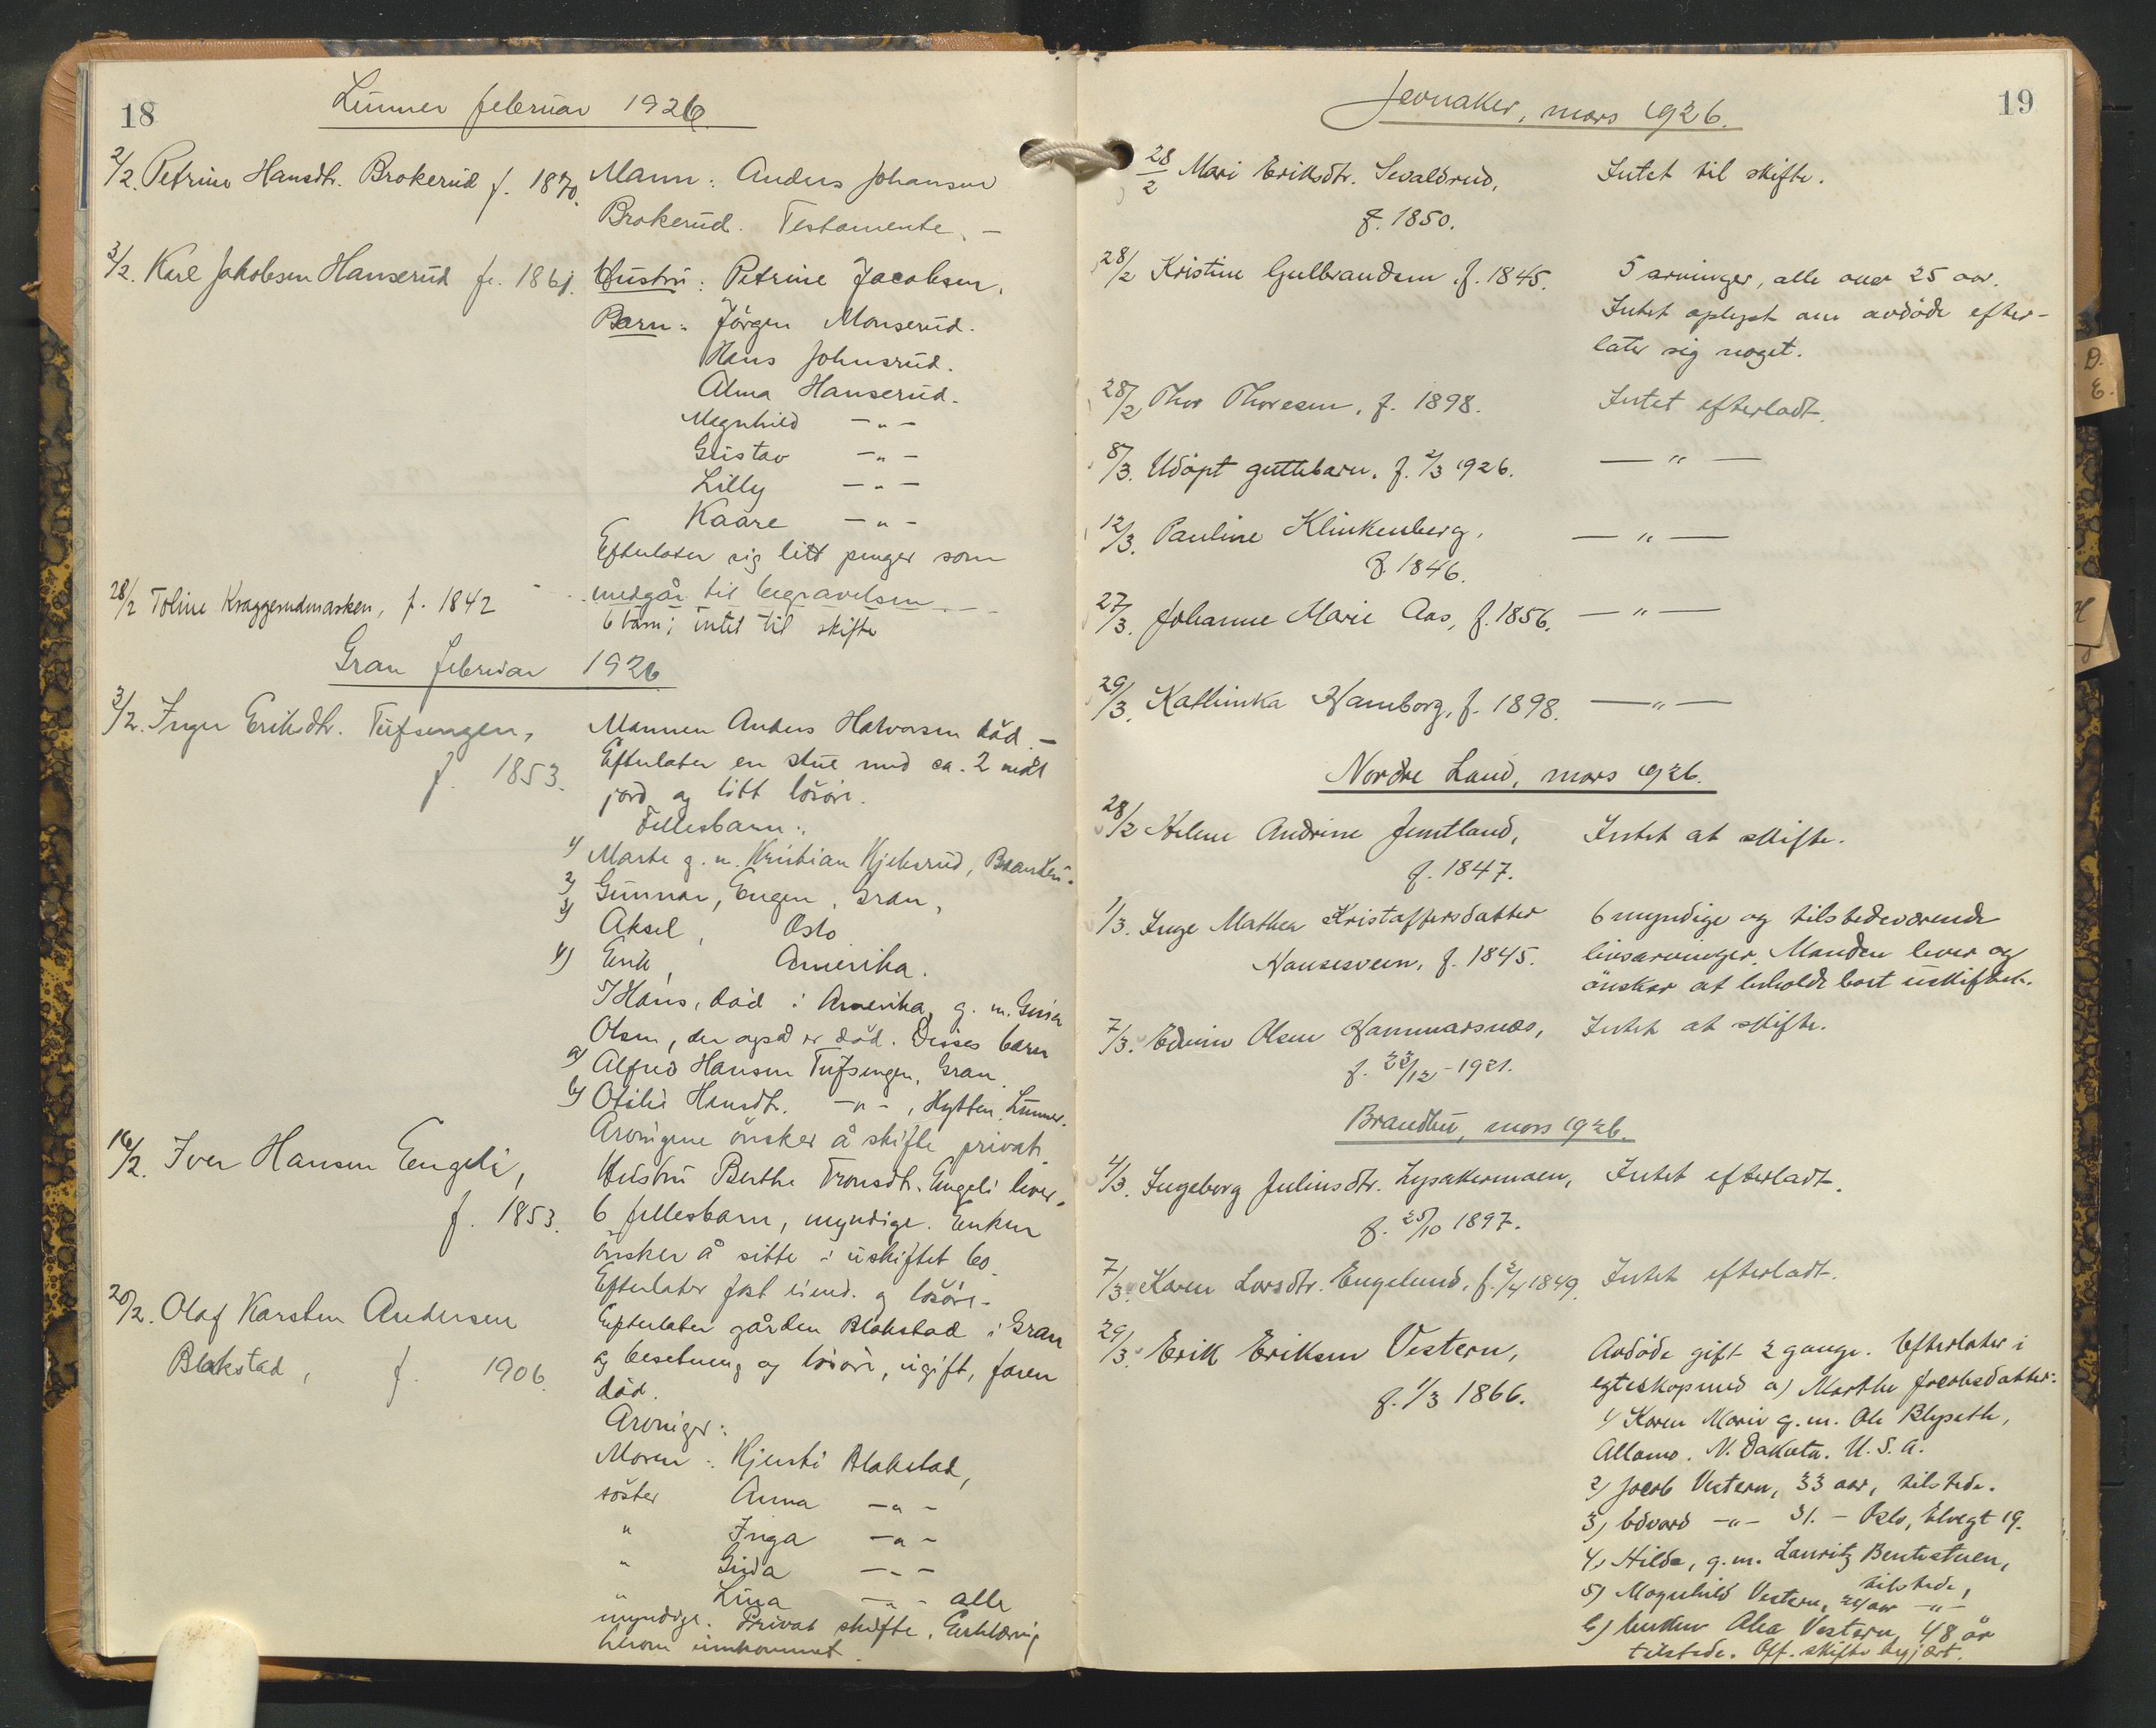 18
Lunner februar 1926
2/2. Petrine Hansdtr. Brokerud f. 1870. Mann: Anders Johansen
Brokerud. Testamente. —
3/2. Karl Jakobsen Hanserud f. 1861. Hustru: Petrine Jacobsen.
Barn: Jörgen Monserud.
Hans Johnsrud.
Alma Hanserud.
Magnhild — " —
Gustav — " —
Lilly — " —
Kaare — " —
Efterlater sig litt penger som
medgår til begravelsen
28/2 Toline Kraggerudmarken, f. 1842 6 barn; intet til skifte
Gran februar 1926
3/2. Inger Eriksdtr. Tufsengen, Mannen Anders Halvorsen död. —
f. 1853. Efterlater en stue med ca. 2 mål
jord og litt lösöre.
Fellesbarn:
1) Marte g. m. Kristian Kjekerud, Brandbu.
2) Gunnar, Engen, Gran,
3) Aksel, Oslo
4) Erik, Amerika.
Hans, död i Amerika, g. m. Gina
Olsen, der også er död. Disses barn
a) Alfred Hansen Tufsengen, Gran.
b) Otilie Hansdtr. — " —, Hytten, Lunner.
Arvingene önsker å skifte privat.
16/2. Iver Hansen Engeli, Hustru Berthe Tronsdtr. Engeli lever.
f. 1853. 6 fellesbarn, myndige. Enken
önsker å sitte i uskiftet bo.
Efterlater fast eiend. og lösöre.
20/2. Olaf Karsten Andersen Efterlater gården Blakstad i Gran
Blakstad, f. 1906. og besetning og lösöre, ugift, faren
död.
Arvinger:
Moren: Kjersti Blakstad,
söster Anna — " —
" Inga — " —
" Gida — " —
" Lina — " — alle
myndige. Privat skifte. Erklæring
herom innkommet.
19
Jevnaker, mars 1926.
28/2 Mari Eriksdtr. Sevaldrud, Intet til skifte.
f. 1850.
28/2 Kristine Gulbrandsen, f. 1845. 5 arvinger, alle over 25 aar.
Intet oplyst om avdöde efter-
later sig noget.
28/2 Thor Thoresen, f. 1898. Intet efterladt.
8/3. Udöpt guttebarn. f. 2/3 1926. — " —
12/3. Pauline Klinkenberg, — " —
f. 1846.
27/3. Johanne Marie Aas, f. 1856. — " —
29/3. Kathinka Hamborg, f. 1898. — " —
Nordre Land, mars 1926.
28/2 Helene Andrine Jemtland, Intet at skifte.
f. 1847.
1/3. Inge Mathea Kristoffersdatter 6 myndige og tilstedeværende
Hansesveen, f. 1845. livsarvinger. Manden lever og
önsker at beholde boet uskiftet.
7/3. Edwin Olsen Hammarsnæs, Intet at skifte.
f. 23/12 - 1921.
Brandbu, mars 1926.
4/3. Ingeborg Juliusdtr. Lysakermoen, Intet efterladt.
f. 25/10 1897.
7/3. Karen Larsdtr. Engelund, f. 2/4 1849. Intet efterladt.
29/3. Erik Eriksen Vestern, Avdöde gift 2 gange. Efterlater i
f. 1/3 1866. egteskap med a) Marthe Jacobsdatter:
1) Karen Marie g. m. Ole Blyseth,
Allamo. N. Dakota. U. S. A.
2) Jacob Vestern, 33 aar, tilstede.
3) Edvard — " — 31. — Oslo, Elvegt 19.
4) Hilda, g. m. Lauritz Bentestuen,
tilstede,
5) Magnhild Vestern, 24 aar — " —
b) Enken Alea Vestern, 48 år
tilstede. Off. skifte begjært.
D.
E.
H